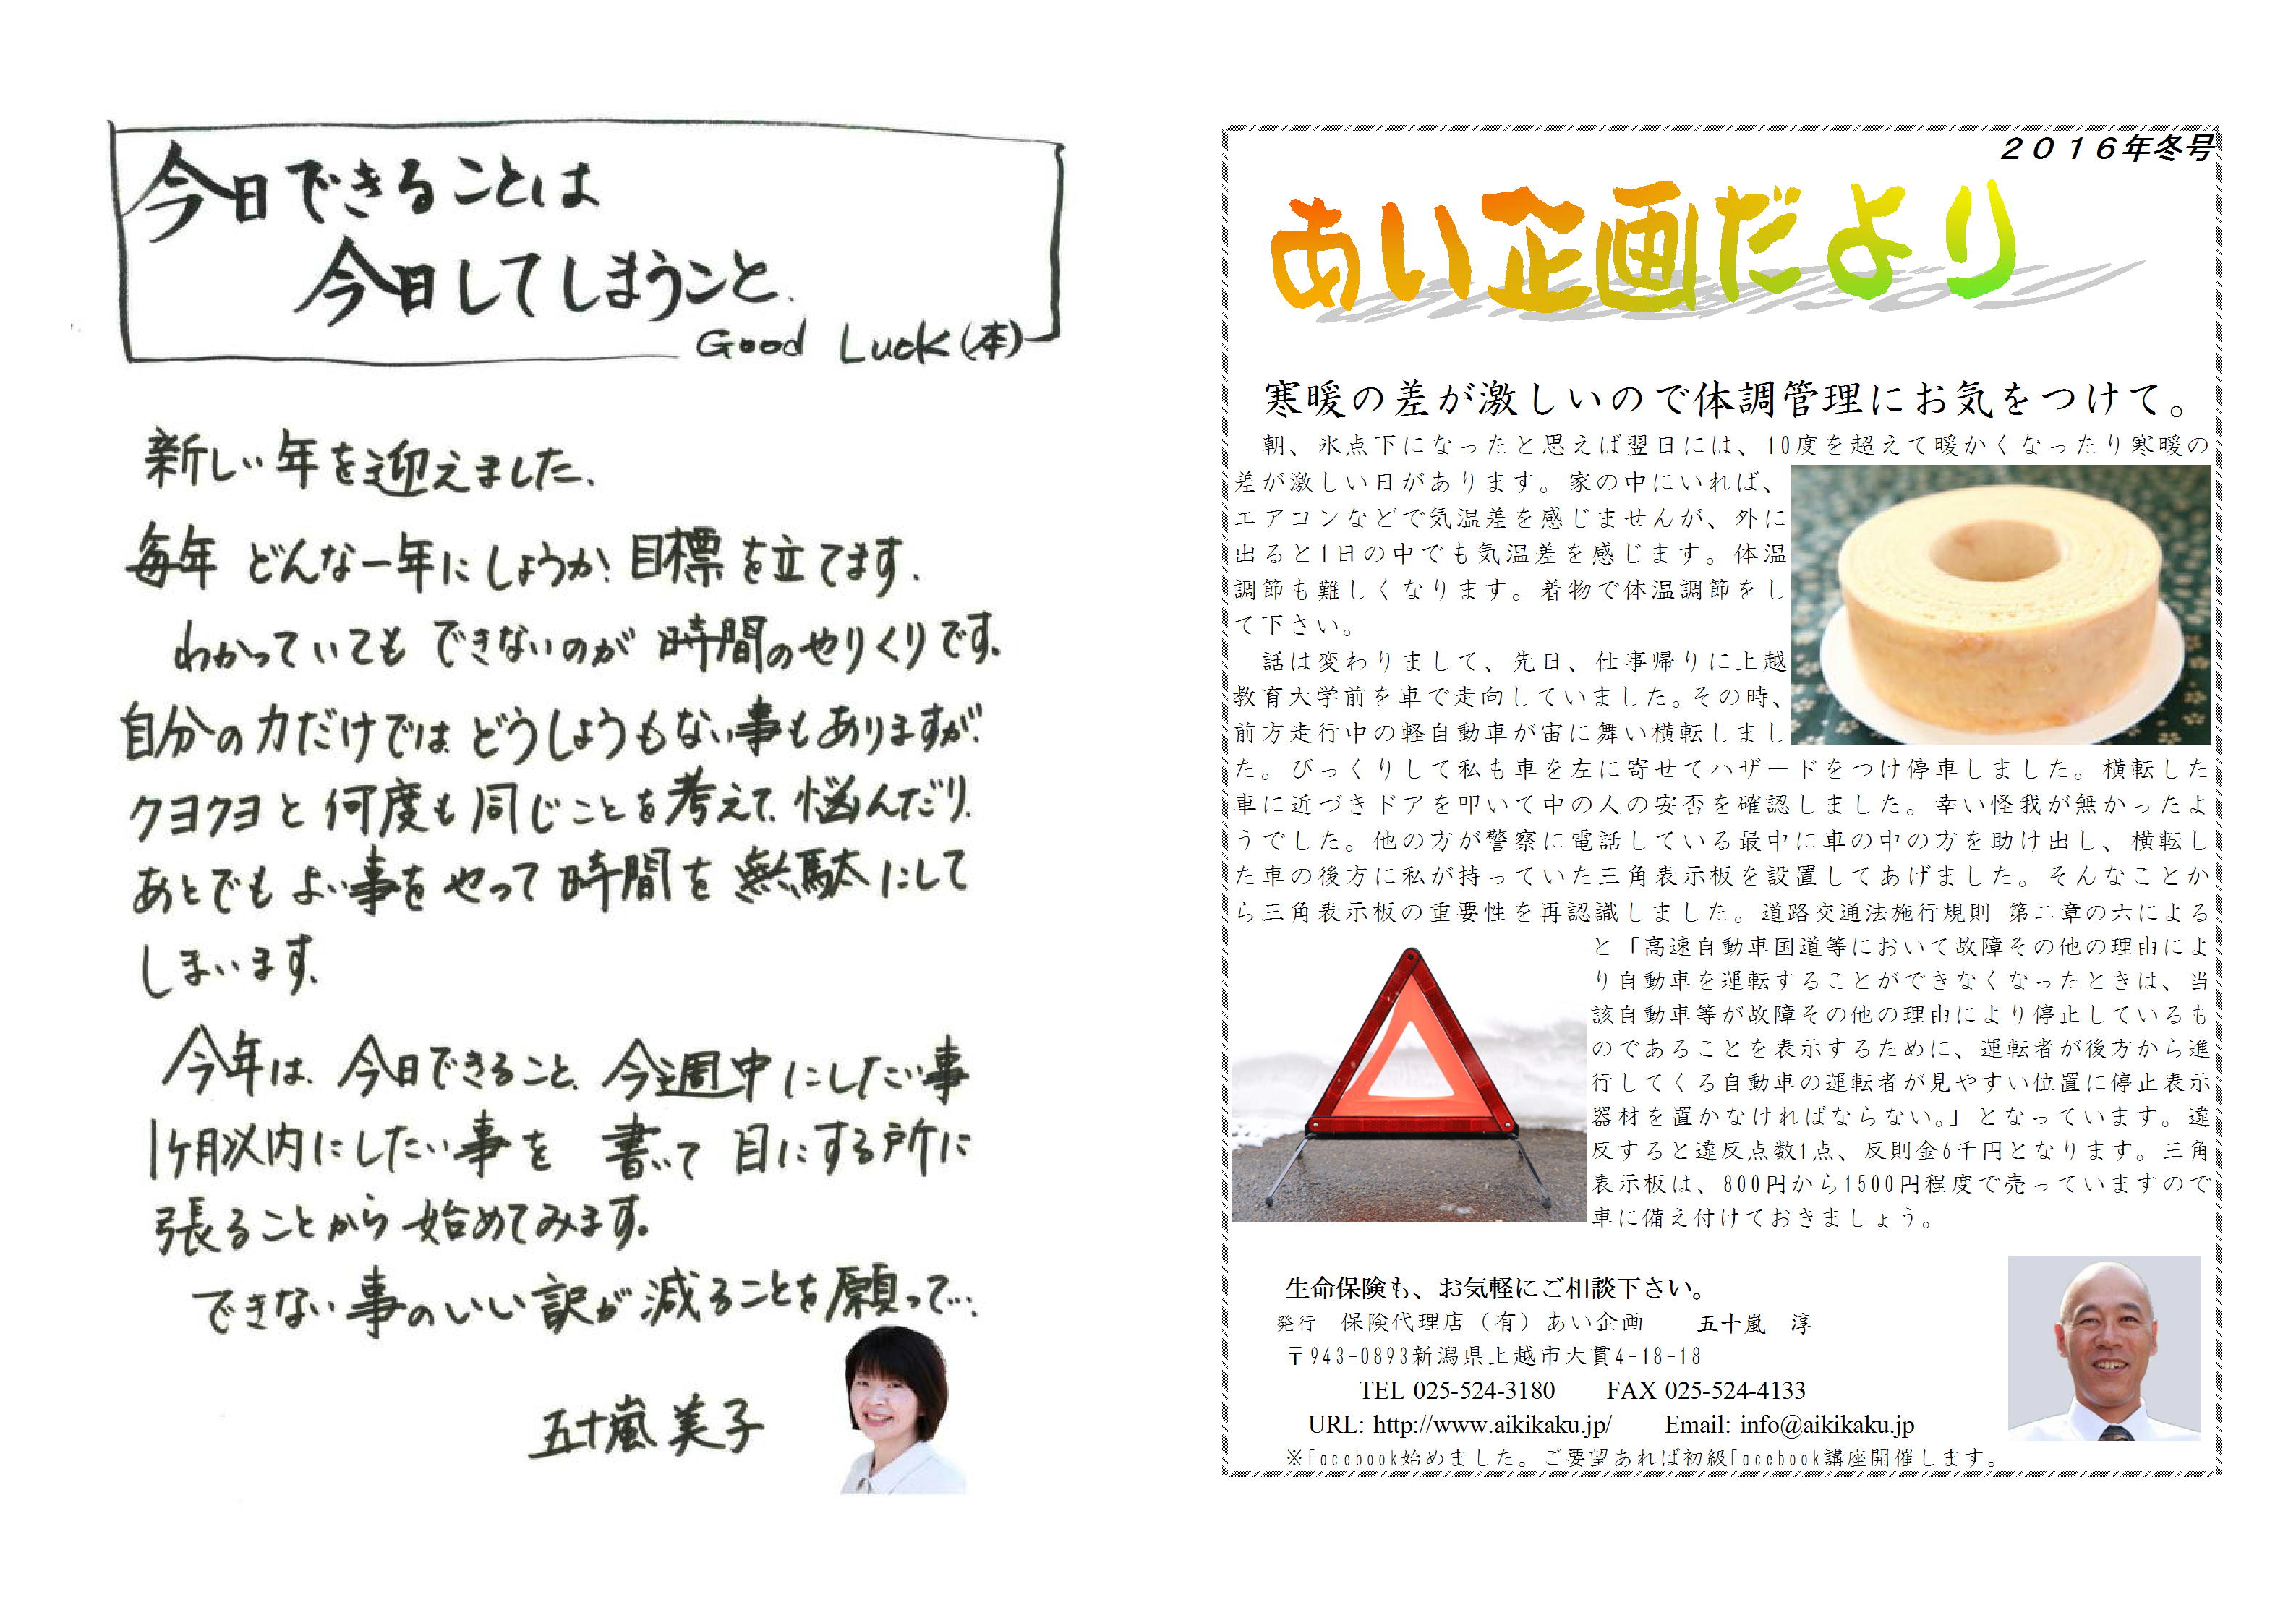 今日できることは
今日してしまうこと.
Good Luck(本)
新しい年を迎えました、
毎年 どんな一年にしようか、目標を立てます.
わかっていても できないのが 時間のやりくりです、
自分の力だけでは どうしようもない事もありますが、
クヨクヨと 何度も同じことを考えて、悩んだり、
あとでもよい事を やって 時間を 無駄にして
しまいます、
今年は、今日できること、今週中にしたい事
1ヶ月以内にしたい事を 書いて 目にする所に
張ることから 始めてみます。
できない事のいい訳が 減ることを願って…
五十嵐 美子
2016年冬号
あい企画だより
寒暖の差が激しいので体調管理にお気をつけて。
朝、氷点下になったと思えば翌日には、10度を超えて暖かくなったり寒暖の
差が激しい日があります。家の中にいれば、
エアコンなどで気温差を感じませんが、外に
出ると1日の中でも気温差を感じます。体温
調節も難しくなります。着物で体温調節をし
て下さい。
話は変わりまして、先日、仕事帰りに上越
教育大学前を車で走向していました。その時、
前方走行中の軽自動車が宙に舞い横転しまし
た。びっくりして私も車を左に寄せてハザードをつけ停車しました。横転した
車に近づきドアを叩いて中の人の安否を確認しました。幸い怪我が無かったよ
うでした。他の方が警察に電話している最中に車の中の方を助け出し、横転し
た車の後方に私が持っていた三角表示板を設置してあげました。そんなことか
ら三角表示板の重要性を再認識しました。道路交通法施行規則 第二章の六による
と「高速自動車国道等において故障その他の理由によ
り自動車を運転することができなくなったときは、当
該自動車等が故障その他の理由により停止しているも
のであることを表示するために、運転者が後方から進
行してくる自動車の運転者が見やすい位置に停止表示
器材を置かなければならない。」となっています。違
反すると違反点数1点、反則金6千円となります。三角
表示板は、800円から1500円程度で売っていますので
車に備え付けておきましょう。
生命保険も、お気軽にご相談下さい。
発行 保険代理店（有）あい企画 五十嵐 淳
〒943-0893新潟県上越市大貫4-18-18
TEL 025-524-3180 FAX 025-524-4133
URL: http://www.aikikaku.jp/ Email: info@aikikaku.jp
※Facebook始めました。ご要望あれば初級Facebook講座開催します。